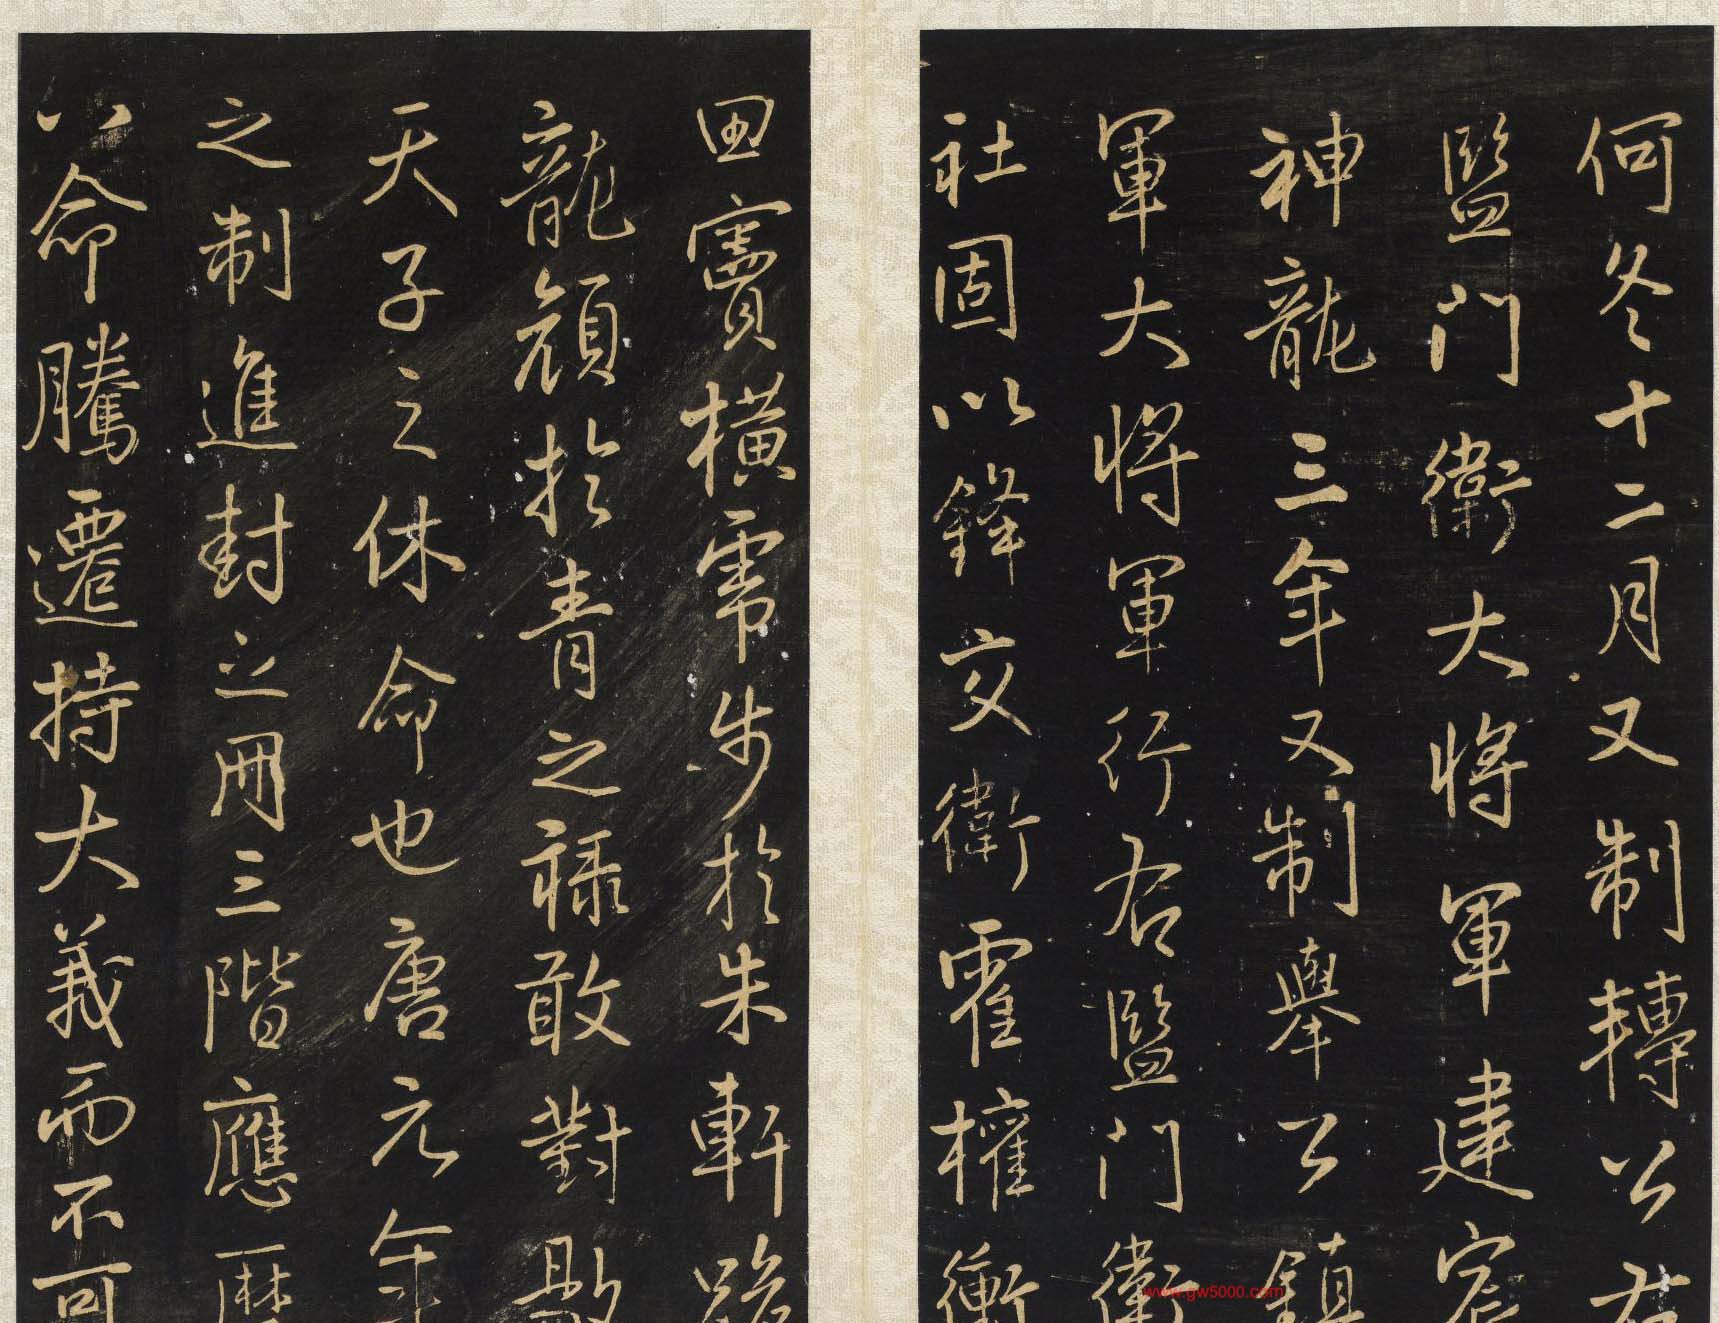 何冬十二月又制轉公右
監門衛大將軍建寄
神龍三年又制舉公鎮
軍大將軍行右監門衛
社固以鋒交衛霍權衡
田竇橫霈步於朱軒
龍顏於青之祿敢對敭
天子之休命也唐元年
之制進封之冊三階應曆
以命騰遷持大義而不可
www.gw5000.com